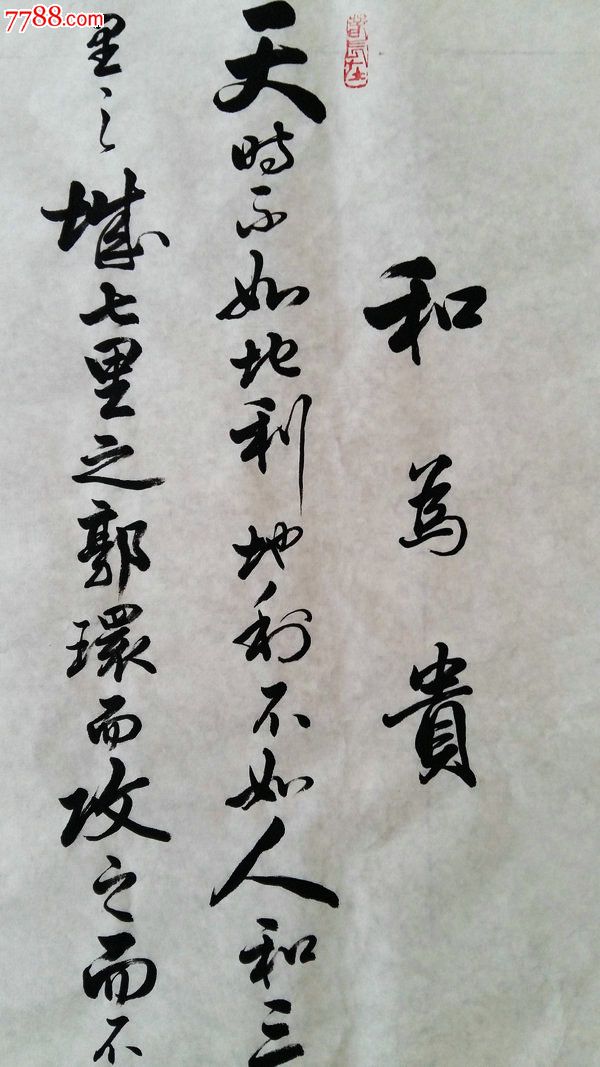 和為貴
天時不如地利地利不如人和三
里之城七里之郭環而攻之而不
7788.com